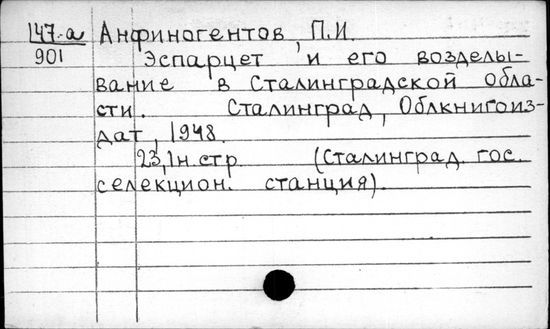 147-а Анфиногентов, П.И.
901 Эспарцет и его возделы-
вание в Сталинградской обла-
сти. Сталинград, Облкнигоиз-
дат, 1948.
23,1н.стр (Сталинград. гос.
селекцион. станция).